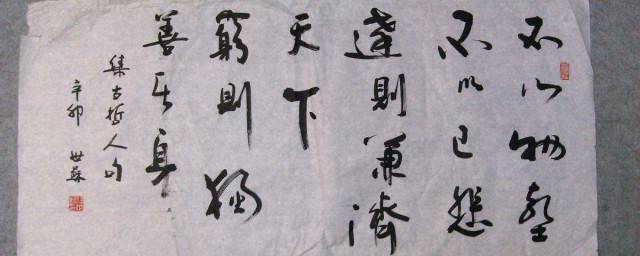 不以物喜
不以己悲
達則兼濟
天下
窮則獨
善其身
集古哲人句
辛卯 世蘇